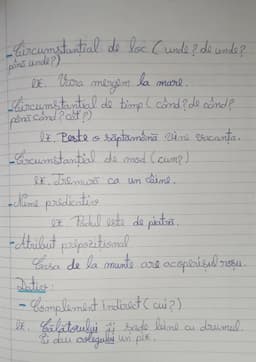 -Circumstanțial de loc (unde? de unde?
până unde?)
ex. Vara mergem la mare.
-Circumstanțial de timp (când? de când?
până când? cât?)
Ex. Peste o săptămână vine vacanța.
-Circumstanțial de mod (cum?)
ex. Tremură ca un câine.
-Nume predicativ
ex Podul este de piatră.
-Atribut prepozițional
Casa de la munte are acoperișul roșu.
Dativ:
- Complement Indirect (cui?)
ex. Călătorului îi șade bine cu drumul.
Ei dau colegului un pix.